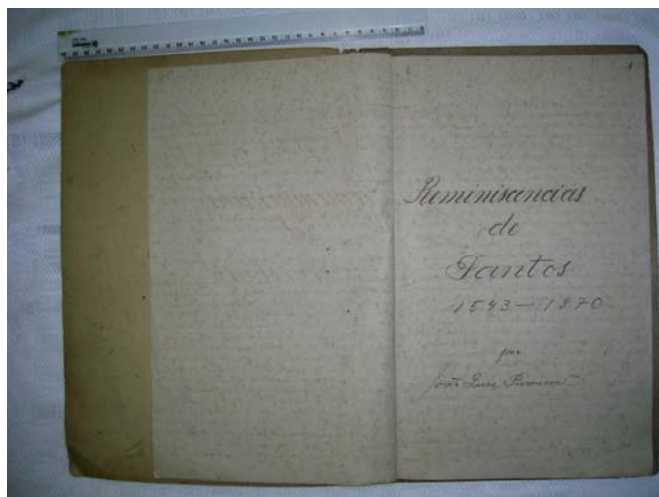 Reminiscencias
de
Santos
1543 — 1870
por
João Luiz